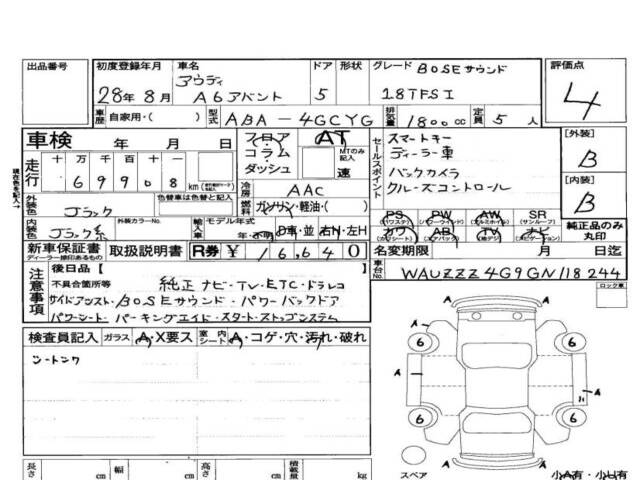 出品番号 初度登録年月 車名 ドア 形状 グレード BOSEサウンド 評価点
アウディ
28年8月 A6アバント 5 18TFSI 4
車歴 自家用・( ) 型式 ABA-4GCYG 排気量 1800cc 定員 5人
車検 年 月 日 フロア AT セールスポイント スマートキー [外装]
コラム・ MTのみ記入 ディーラー車 B
走行 十 万 千 百 十 ダッシュ 速 バックカメラ
69908 km 冷房 AAC クルーズコントロール [内装]
燃料 ガソリン・軽油・( ) B
外装色 ブラック 色替車は色替と記入
PS PW AW SR 純正品のみ丸印
(パワステ) (パワーウインド) (アルミホイル) (サンルーフ)
内装色 ブラック系 外装カラーNo. 輸入車 モデル年式 カワ AB TV ナビ
年・不明 D車・並 右H・左H
新車保証書 取扱説明書 R券 ¥16,640 年 月 日迄
ディーラー捺印あるもの
後日品[ ] 車台No. WAUZZZ4G9GN118244
注意事項 不具合箇所等 純正ナビ・TV・ETC・ドラレコ ロック車
サイドアシスト・BOSEサウンド・パワーバックドア
パワーシート・パーキングエイド・スタートストップシステム
検査員記入 ガラス A・X要ス 室内シート A・コゲ・穴・汚れ・破れ
A
A
6 6
A A
6 6
A
スペア 小A有・小U有
長さ cm 幅 cm 高さ cm 積載量 kg
現在色を記入→